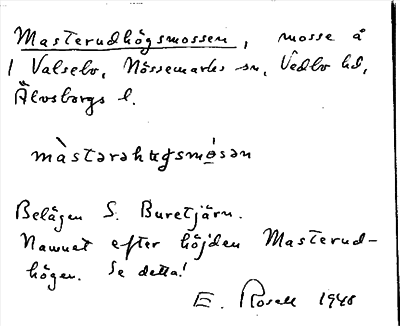 Masterudhögsmossen, mosse å
1 Valsebo, Nössemarks sn, Vedbo hd,
Älvsborgs l.
màstərəhøgsmósən
Belägen S. Buretjärn.
Namnet efter höjden Masterud-
högen. Se detta!
E. Rosell 1948